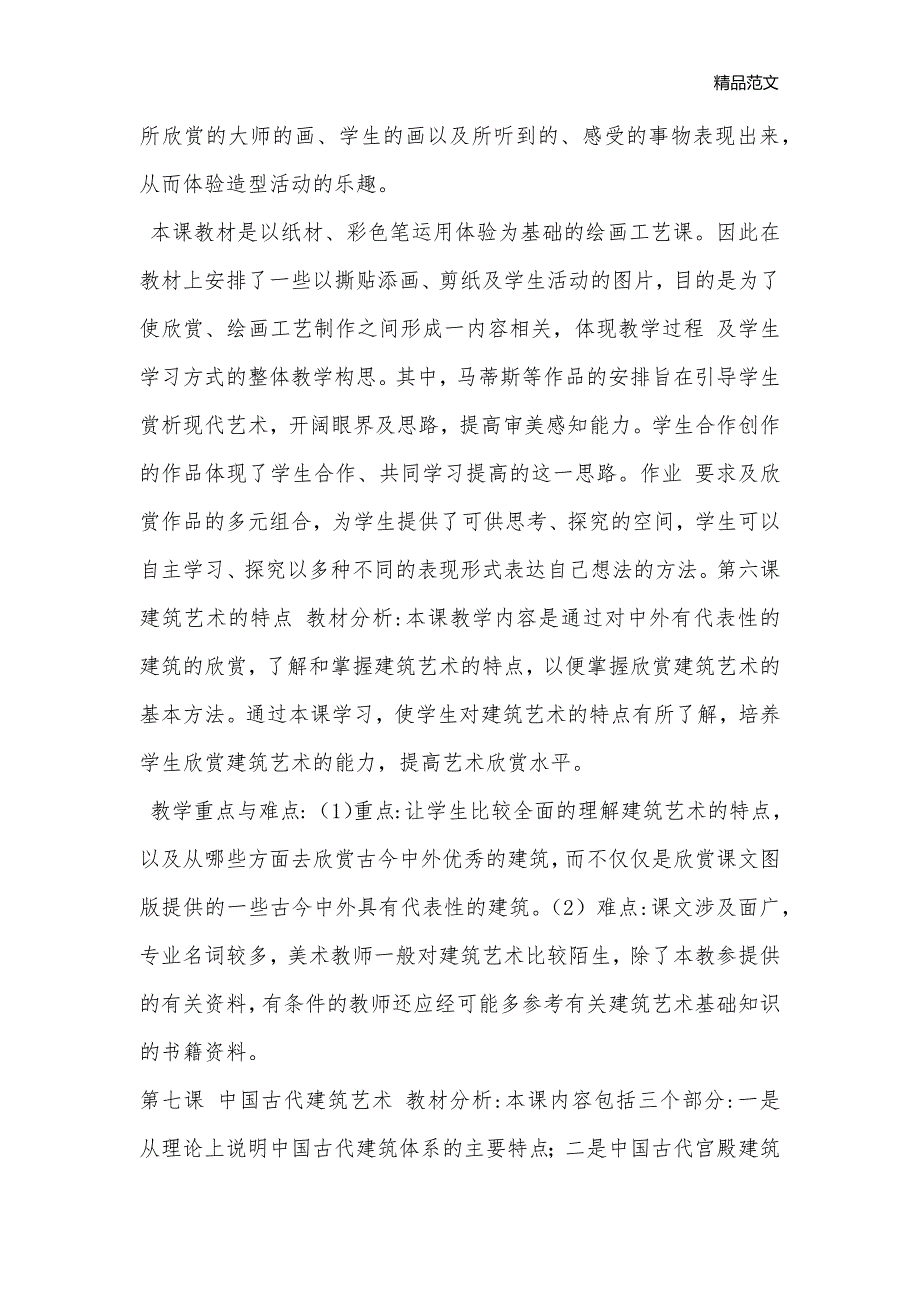 精品范文
所欣赏的大师的画、学生的画以及所听到的、感受的事物表现出来，
从而体验造型活动的乐趣。
本课教材是以纸材、彩色笔运用体验为基础的绘画工艺课。因此在
教材上安排了一些以撕贴添画、剪纸及学生活动的图片，目的是为了
使欣赏、绘画工艺制作之间形成一内容相关，体现教学过程 及学生
学习方式的整体教学构思。其中，马蒂斯等作品的安排旨在引导学生
赏析现代艺术，开阔眼界及思路，提高审美感知能力。学生合作创作
的作品体现了学生合作、共同学习提高的这一思路。作业 要求及欣
赏作品的多元组合，为学生提供了可供思考、探究的空间，学生可以
自主学习、探究以多种不同的表现形式表达自己想法的方法。第六课
建筑艺术的特点 教材分析:本课教学内容是通过对中外有代表性的
建筑的欣赏，了解和掌握建筑艺术的特点，以便掌握欣赏建筑艺术的
基本方法。通过本课学习，使学生对建筑艺术的特点有所了解，培养
学生欣赏建筑艺术的能力，提高艺术欣赏水平。
教学重点与难点:（1)重点:让学生比较全面的理解建筑艺术的特点，
以及从哪些方面去欣赏古今中外优秀的建筑，而不仅仅是欣赏课文图
版提供的一些古今中外具有代表性的建筑。（2）难点:课文涉及面广，
专业名词较多，美术教师一般对建筑艺术比较陌生，除了本教参提供
的有关资料，有条件的教师还应经可能多参考有关建筑艺术基础知识
的书籍资料。
第七课 中国古代建筑艺术 教材分析:本课内容包括三个部分:一是
从理论上说明中国古代建筑体系的主要特点；二是中国古代宫殿建筑